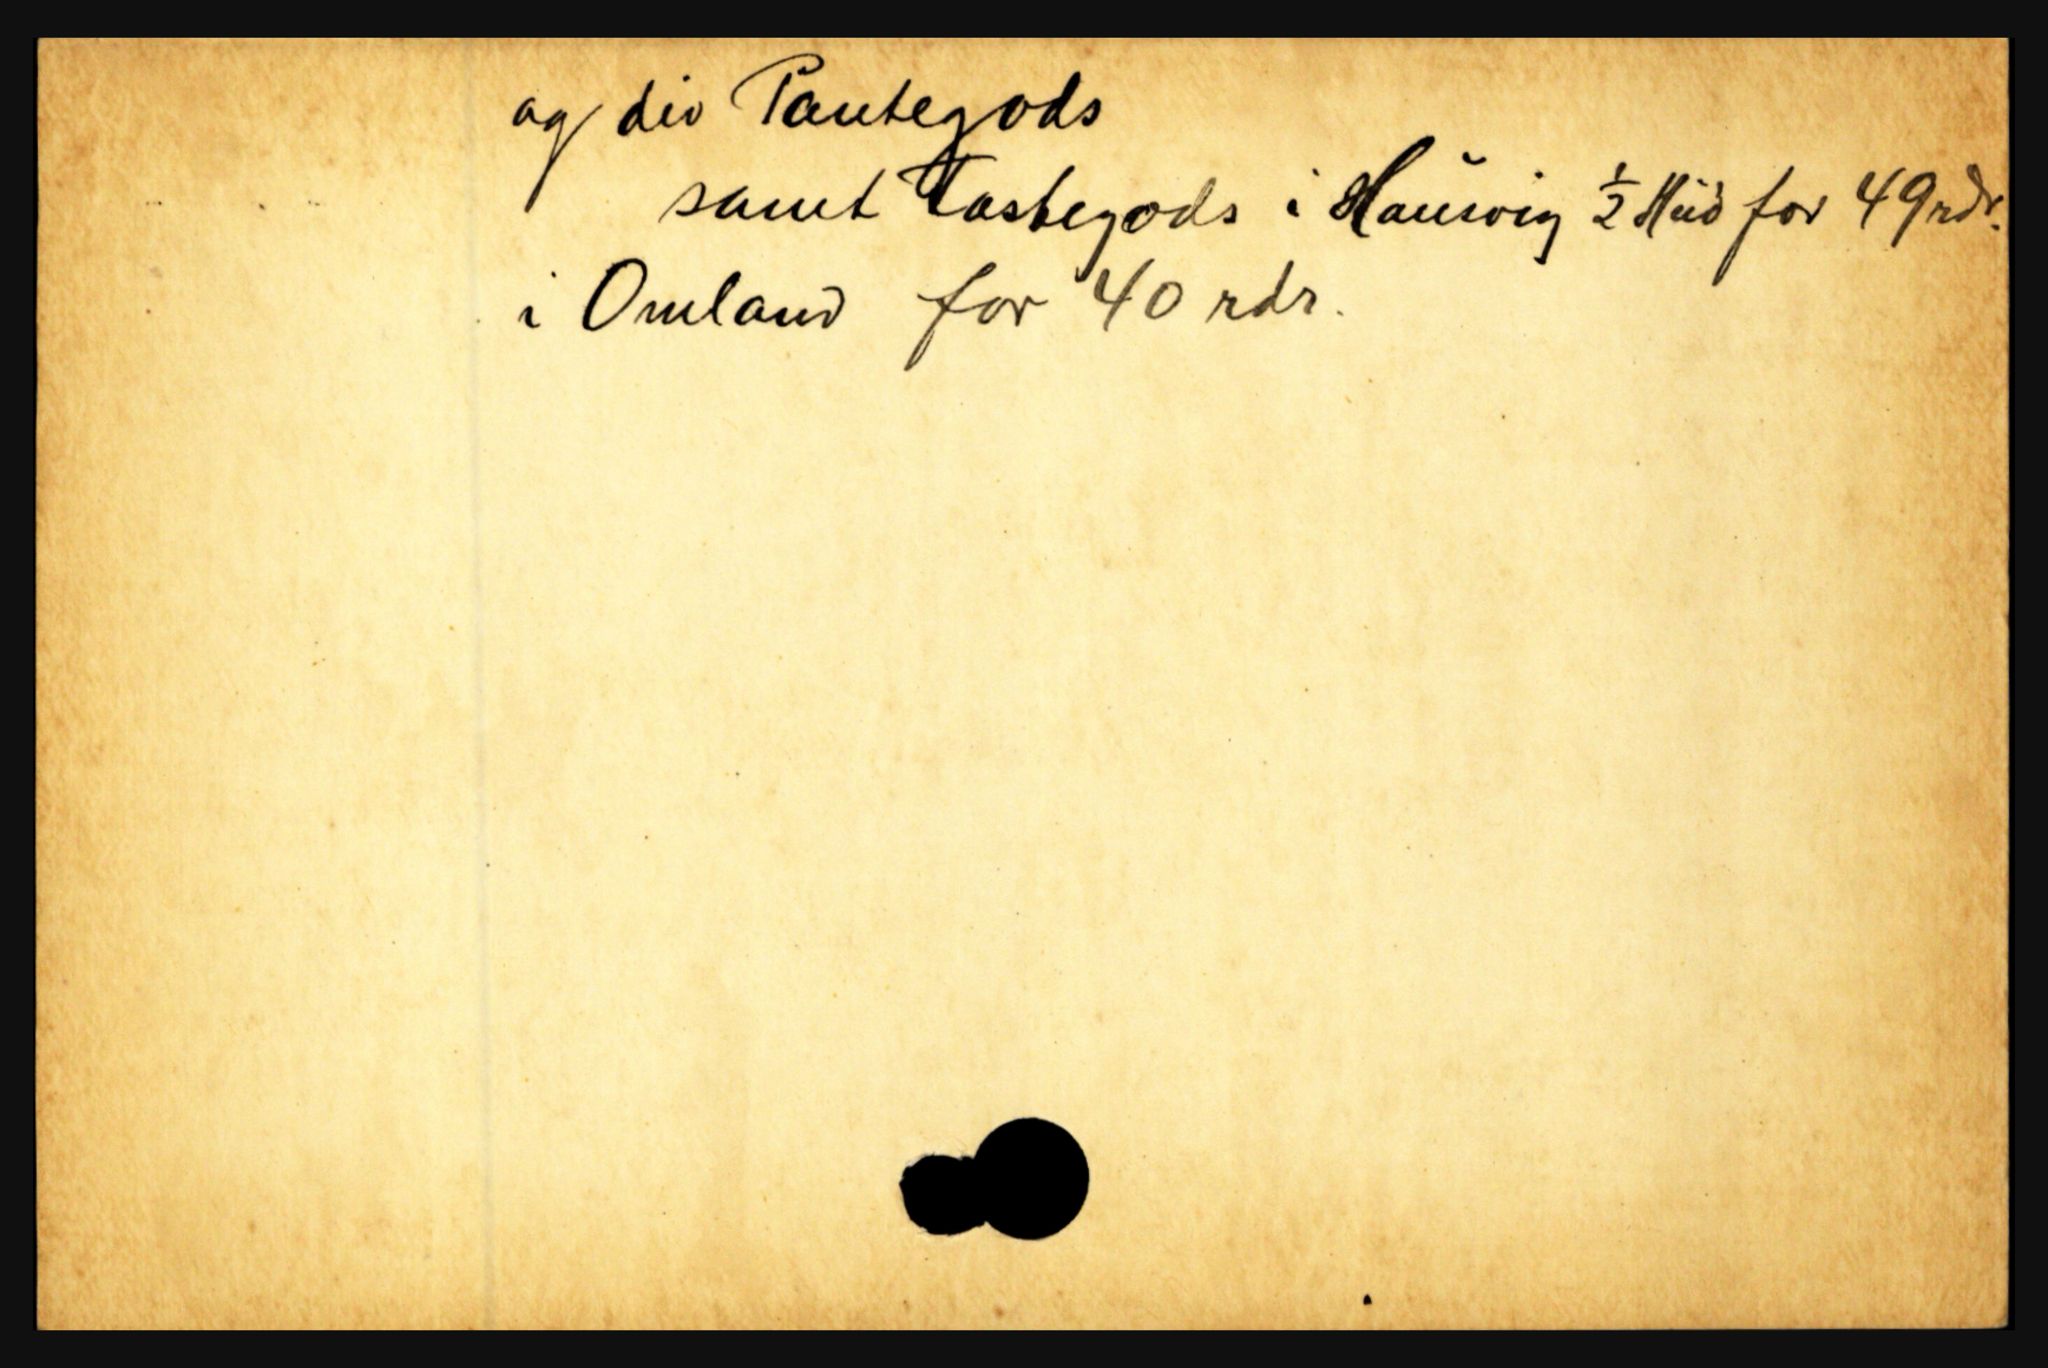 og div Pantegods
samt Fastegods i Hausvig ½ Hud for 49 rdr.
i Omland for 40 rdr.